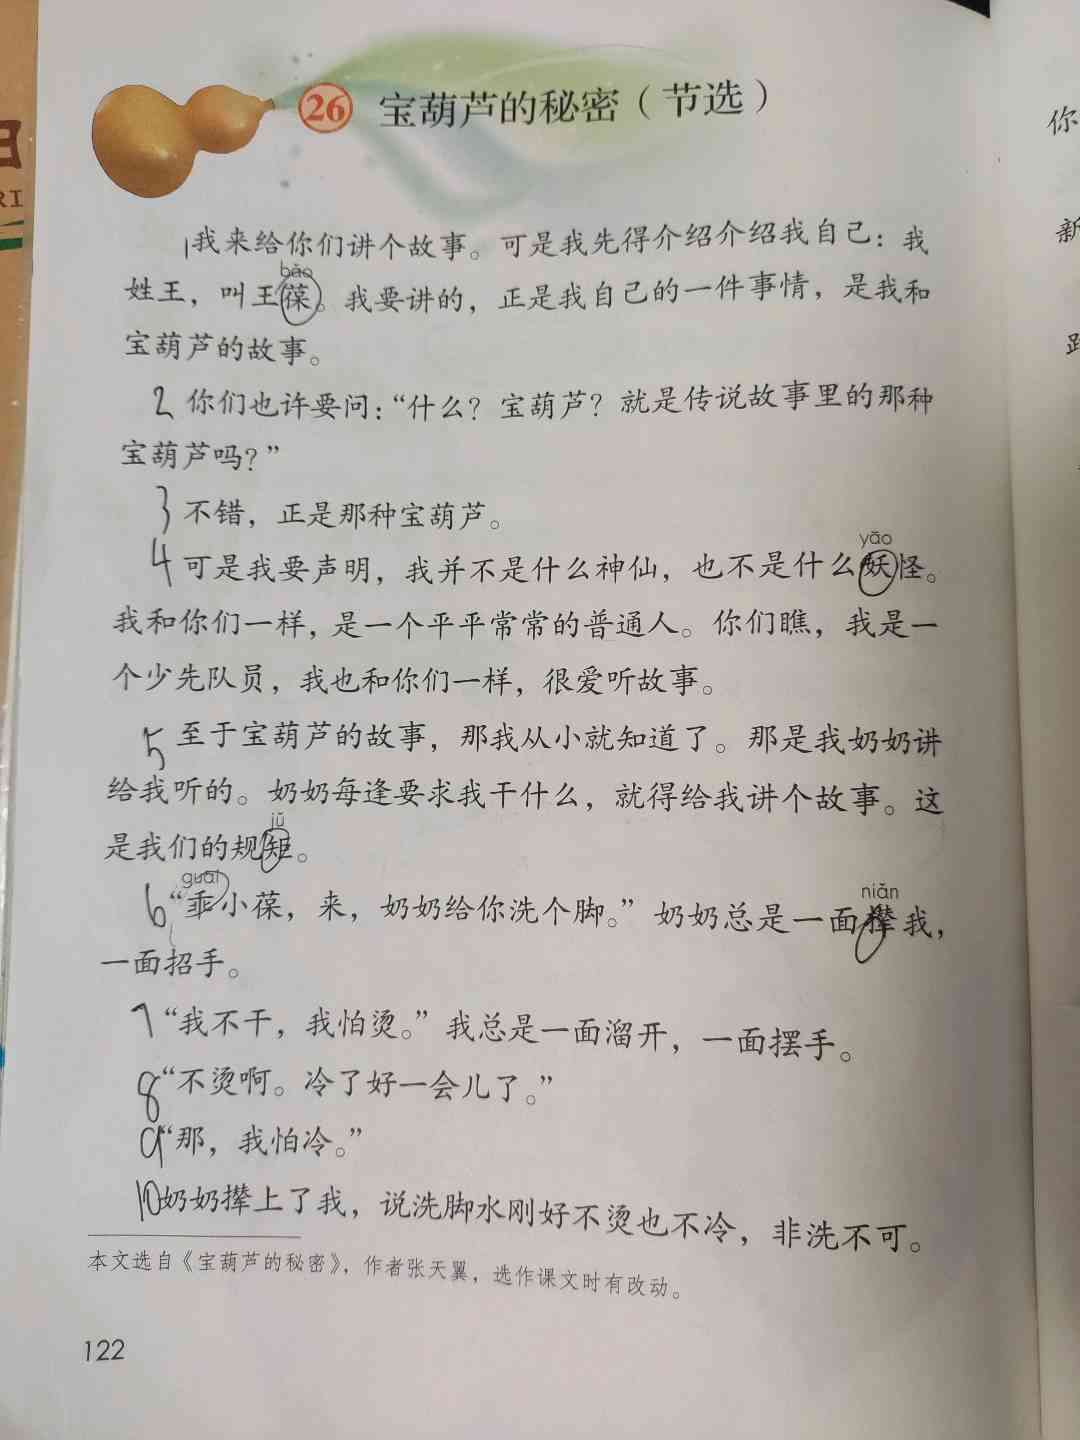 26 宝葫芦的秘密（节选）
1我来给你们讲个故事。可是我先得介绍介绍我自己：我
bǎo
姓王，叫王葆。我要讲的，正是我自己的一件事情，是我和
宝葫芦的故事。
2 你们也许要问：“什么？宝葫芦？就是传说故事里的那种
宝葫芦吗？”
3 不错，正是那种宝葫芦。
yāo
4 可是我要声明，我并不是什么神仙，也不是什么妖怪。
我和你们一样，是一个平平常常的普通人。你们瞧，我是一
个少先队员，我也和你们一样，很爱听故事。
5 至于宝葫芦的故事，那我从小就知道了。那是我奶奶讲
给我听的。奶奶每逢要求我干什么，就得给我讲个故事。这
jǔ
是我们的规矩。
guāi niǎn
6“乖小葆，来，奶奶给你洗个脚。”奶奶总是一面撵我，
一面招手。
7“我不干，我怕烫。”我总是一面溜开，一面摆手。
8“不烫啊。冷了好一会儿了。”
9“那，我怕冷。”
10奶奶撵上了我，说洗脚水刚好不烫也不冷，非洗不可。
本文选自《宝葫芦的秘密》，作者张天翼，选作课文时有改动。
122
RI
你
新